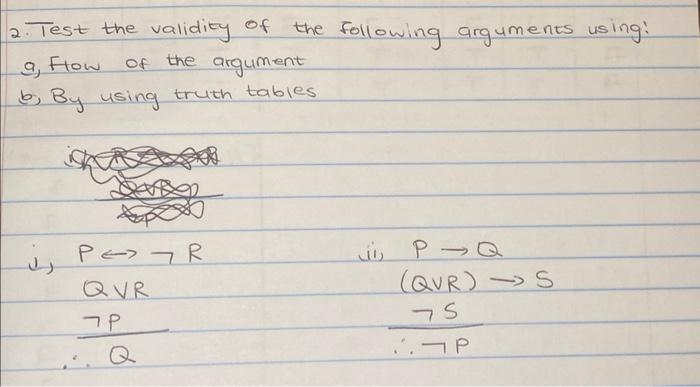 2. Test the validity of the following arguments using:
a, Flow of the argument
b, By using truth tables
i, P ↔ ¬ R
Q V R
¬P
∴ Q
ii, P → Q
(QVR) → S
¬ S
∴ ¬ P